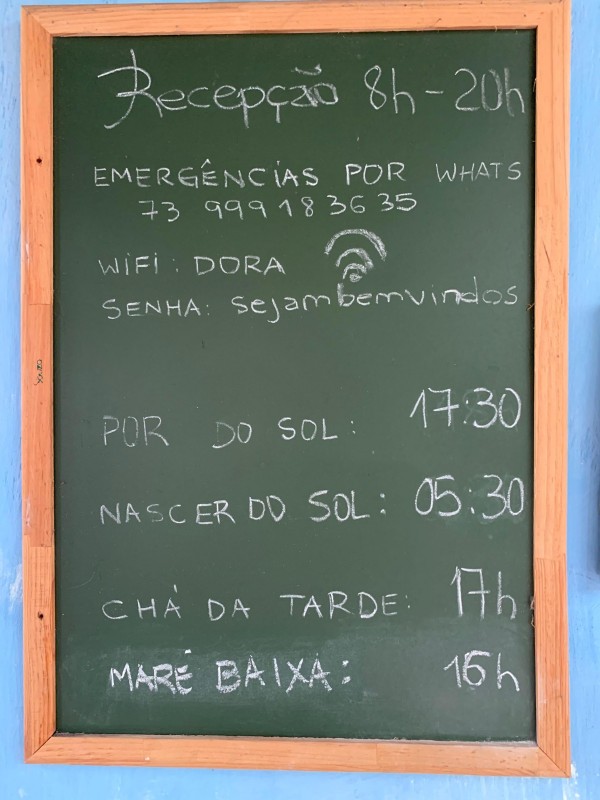 Recepção 8h - 20h
EMERGÊNCIAS POR WHATS
73 999183635
WIFI: DORA
SENHA: sejambemvindos
POR DO SOL: 17:30
NASCER DO SOL: 05:30
CHÁ DA TARDE: 17h
MARÉ BAIXA: 16h